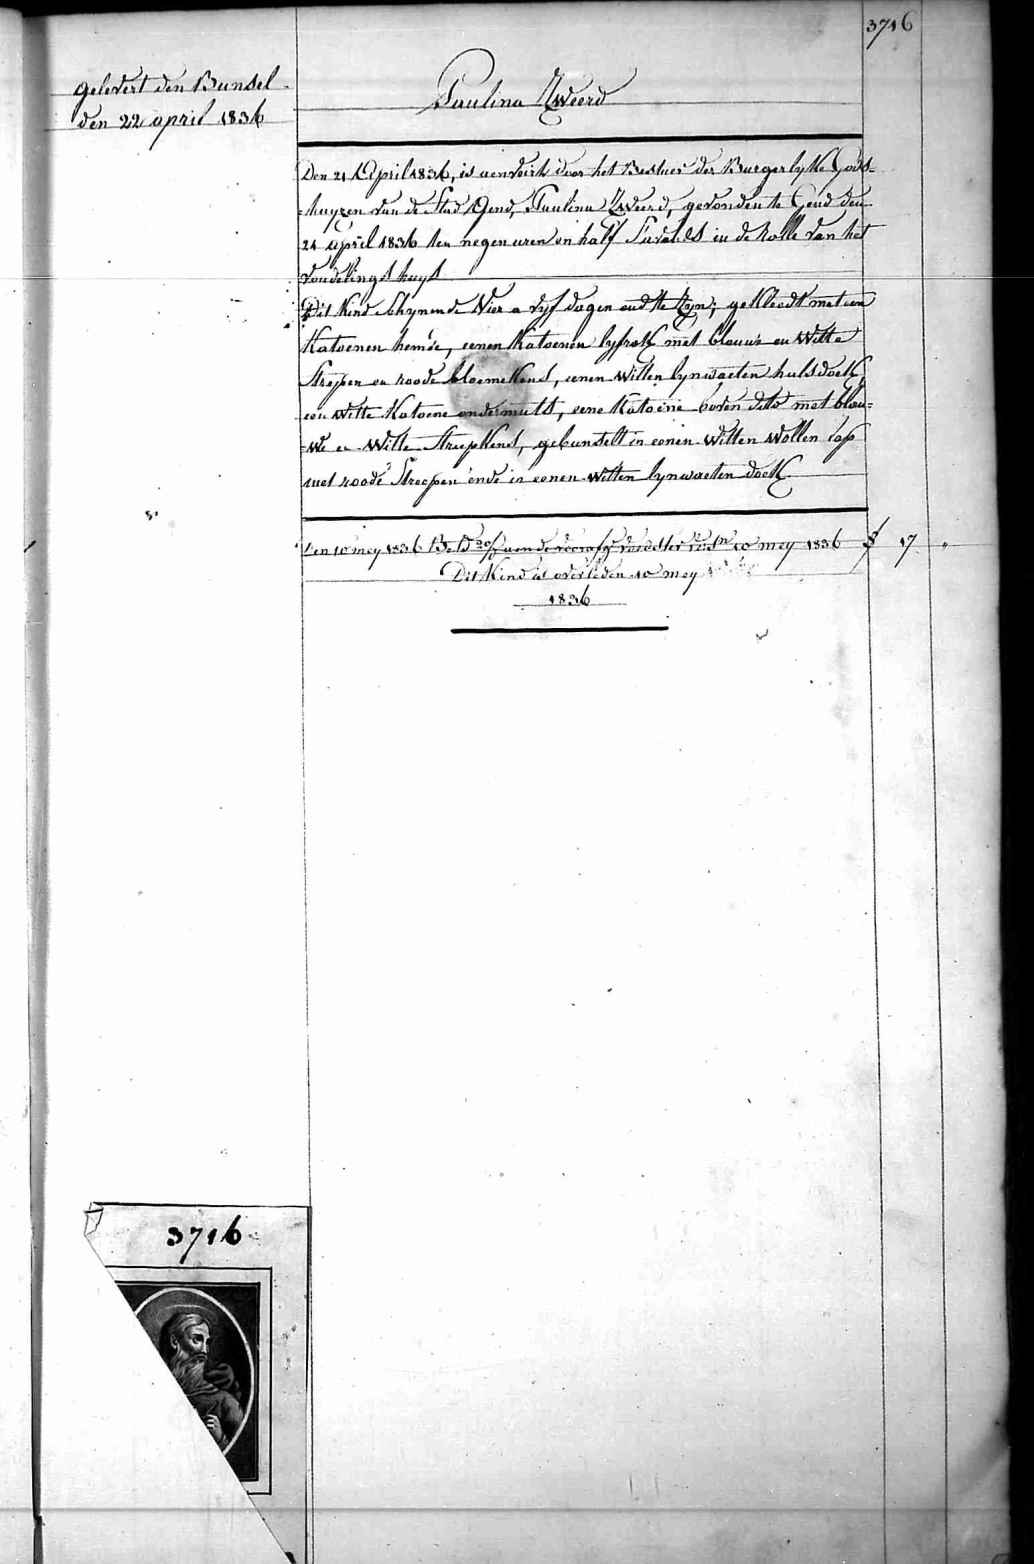 3716
gelevert den Bunsel
den 22 april 1836
Paulina Zweerd
Den 21 April 1836, is aenveirt door het Bestuer der Burgerlyke Gods-
-huyzen van de Stad Gend, Paulina Zweerd, gevonden te Gend den
21 april 1836 ten negen uren en half s'avonds in de rolle van het
vondelings huys
Dit kind schynende vier a vyf dagen oud te zyn; gekleedt met een
Katoenen hemde, eenen Katoenen lyfrok met blauw en witte
streepen en roode bloemekens, eenen witten lynwaeten halsdoek
een witte Katoene ondermuts, eene Katoene boven dito met blau=
=we en witte streepkens, gebunselt in eenen witten wollen lap
met roode streepen ende in eenen witten lynwaeten doek.
den 10 mey 1836 aen de 10 mey 1836 f 17 "
Dit kind is overleden 10 mey
1836
3716